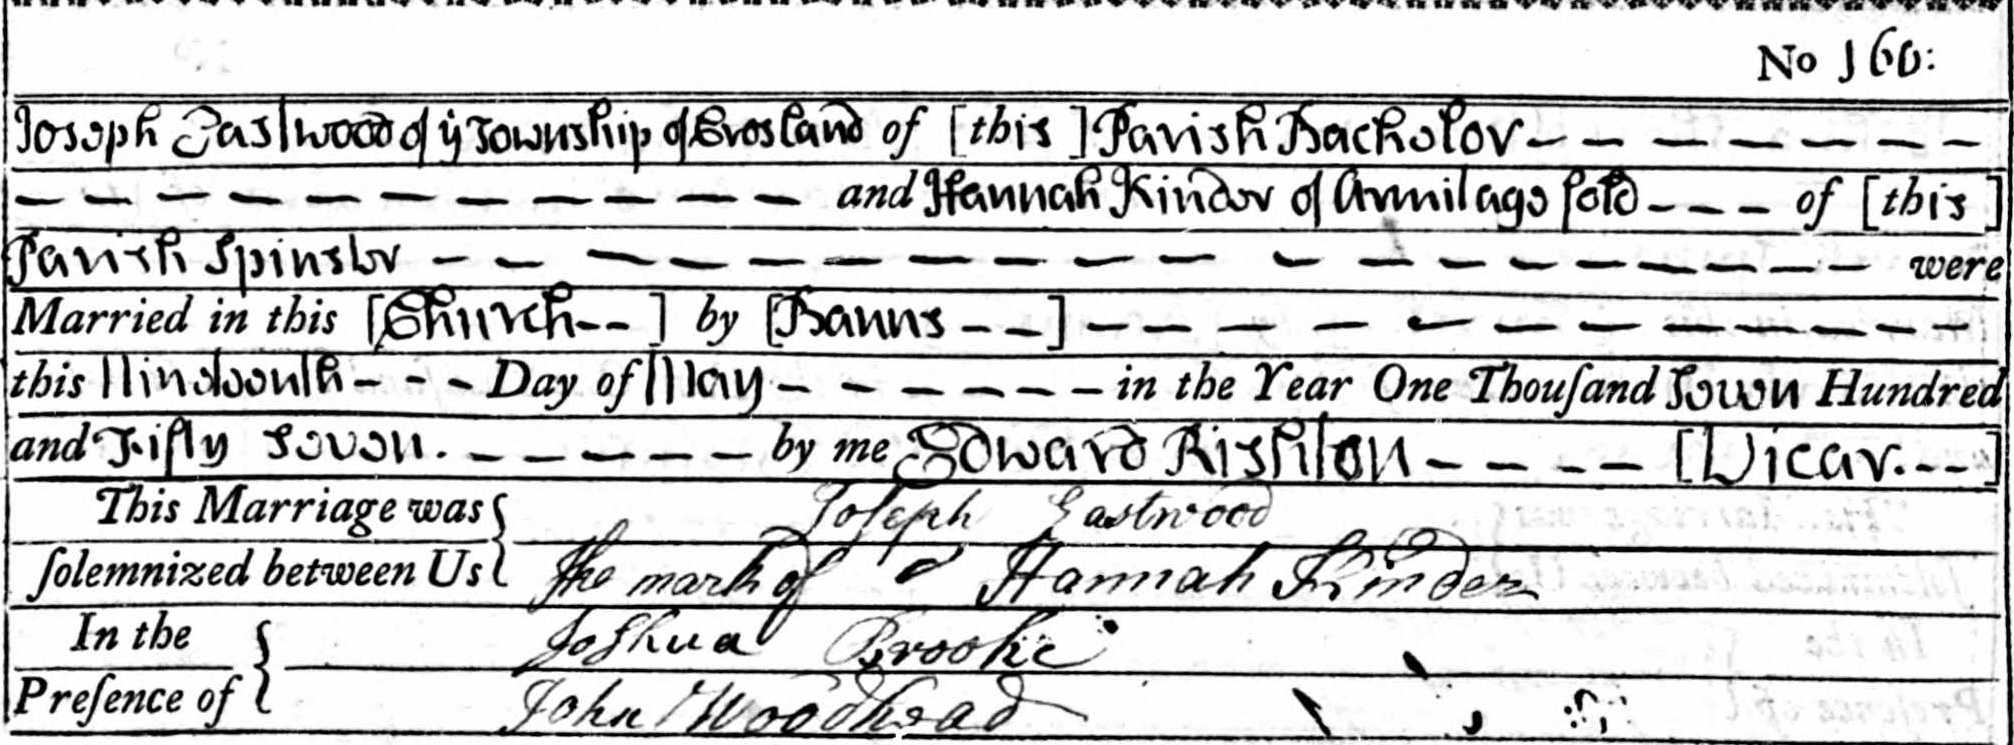 No 166:
Joseph Eastwood of ye Township of Crosland of [this] Parish Bachelor - - - - - - -
- - - - - - - - - - - and Hannah Kinder of Armitage fold - - - of [this]
Parish Spinster - - - - - - - - - - - - - - - - - were
Married in this [Church - -] by [Banns - - -] - - - - - - - - - - - - -
this Nineteenth - - - Day of May - - - - - - in the Year One Thouſand Seven Hundred
and Fifty Seven. - - - - - by me Edward Rishton - - - - [Vicar. - - -]
This Marriage was { Joseph Eastwood
ſolemnized between Us { the mark of Hannah Kinder
In the { Joshua Brooke
Preſence of { John Woodhead